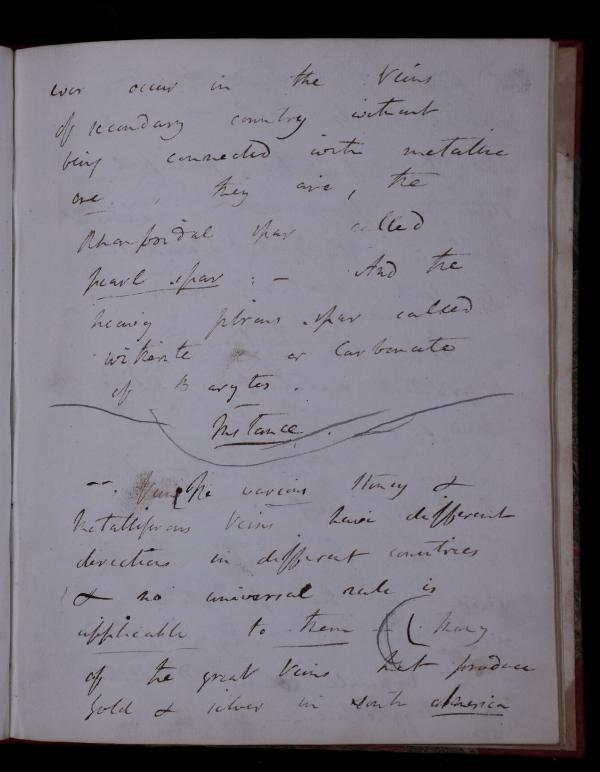 ever occur in the Veins
of secondary country without
being connected with metallic
ore. , they are, the
Rhomboidal spar called
pearl spar : – And the
heavy spar called
witherite or Carbonate
of Barytes.
Instance.
The various Stoney &
Metalliferous Veins have different
directions in different countries
& no universal rule is
applicable to them – ( Many
of the great Veins that produce
Gold & silver in South America